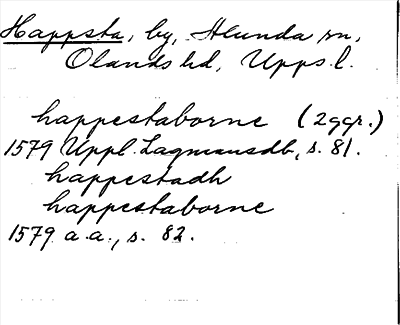 Happsta, by, Stunda sn,
Olands hd, Upps.l.
happestaborne (2ggr.)
1579 Uppl. Lagmansdb, s. 81.
happestadh
happestaborne
1579 a.a., s. 82.